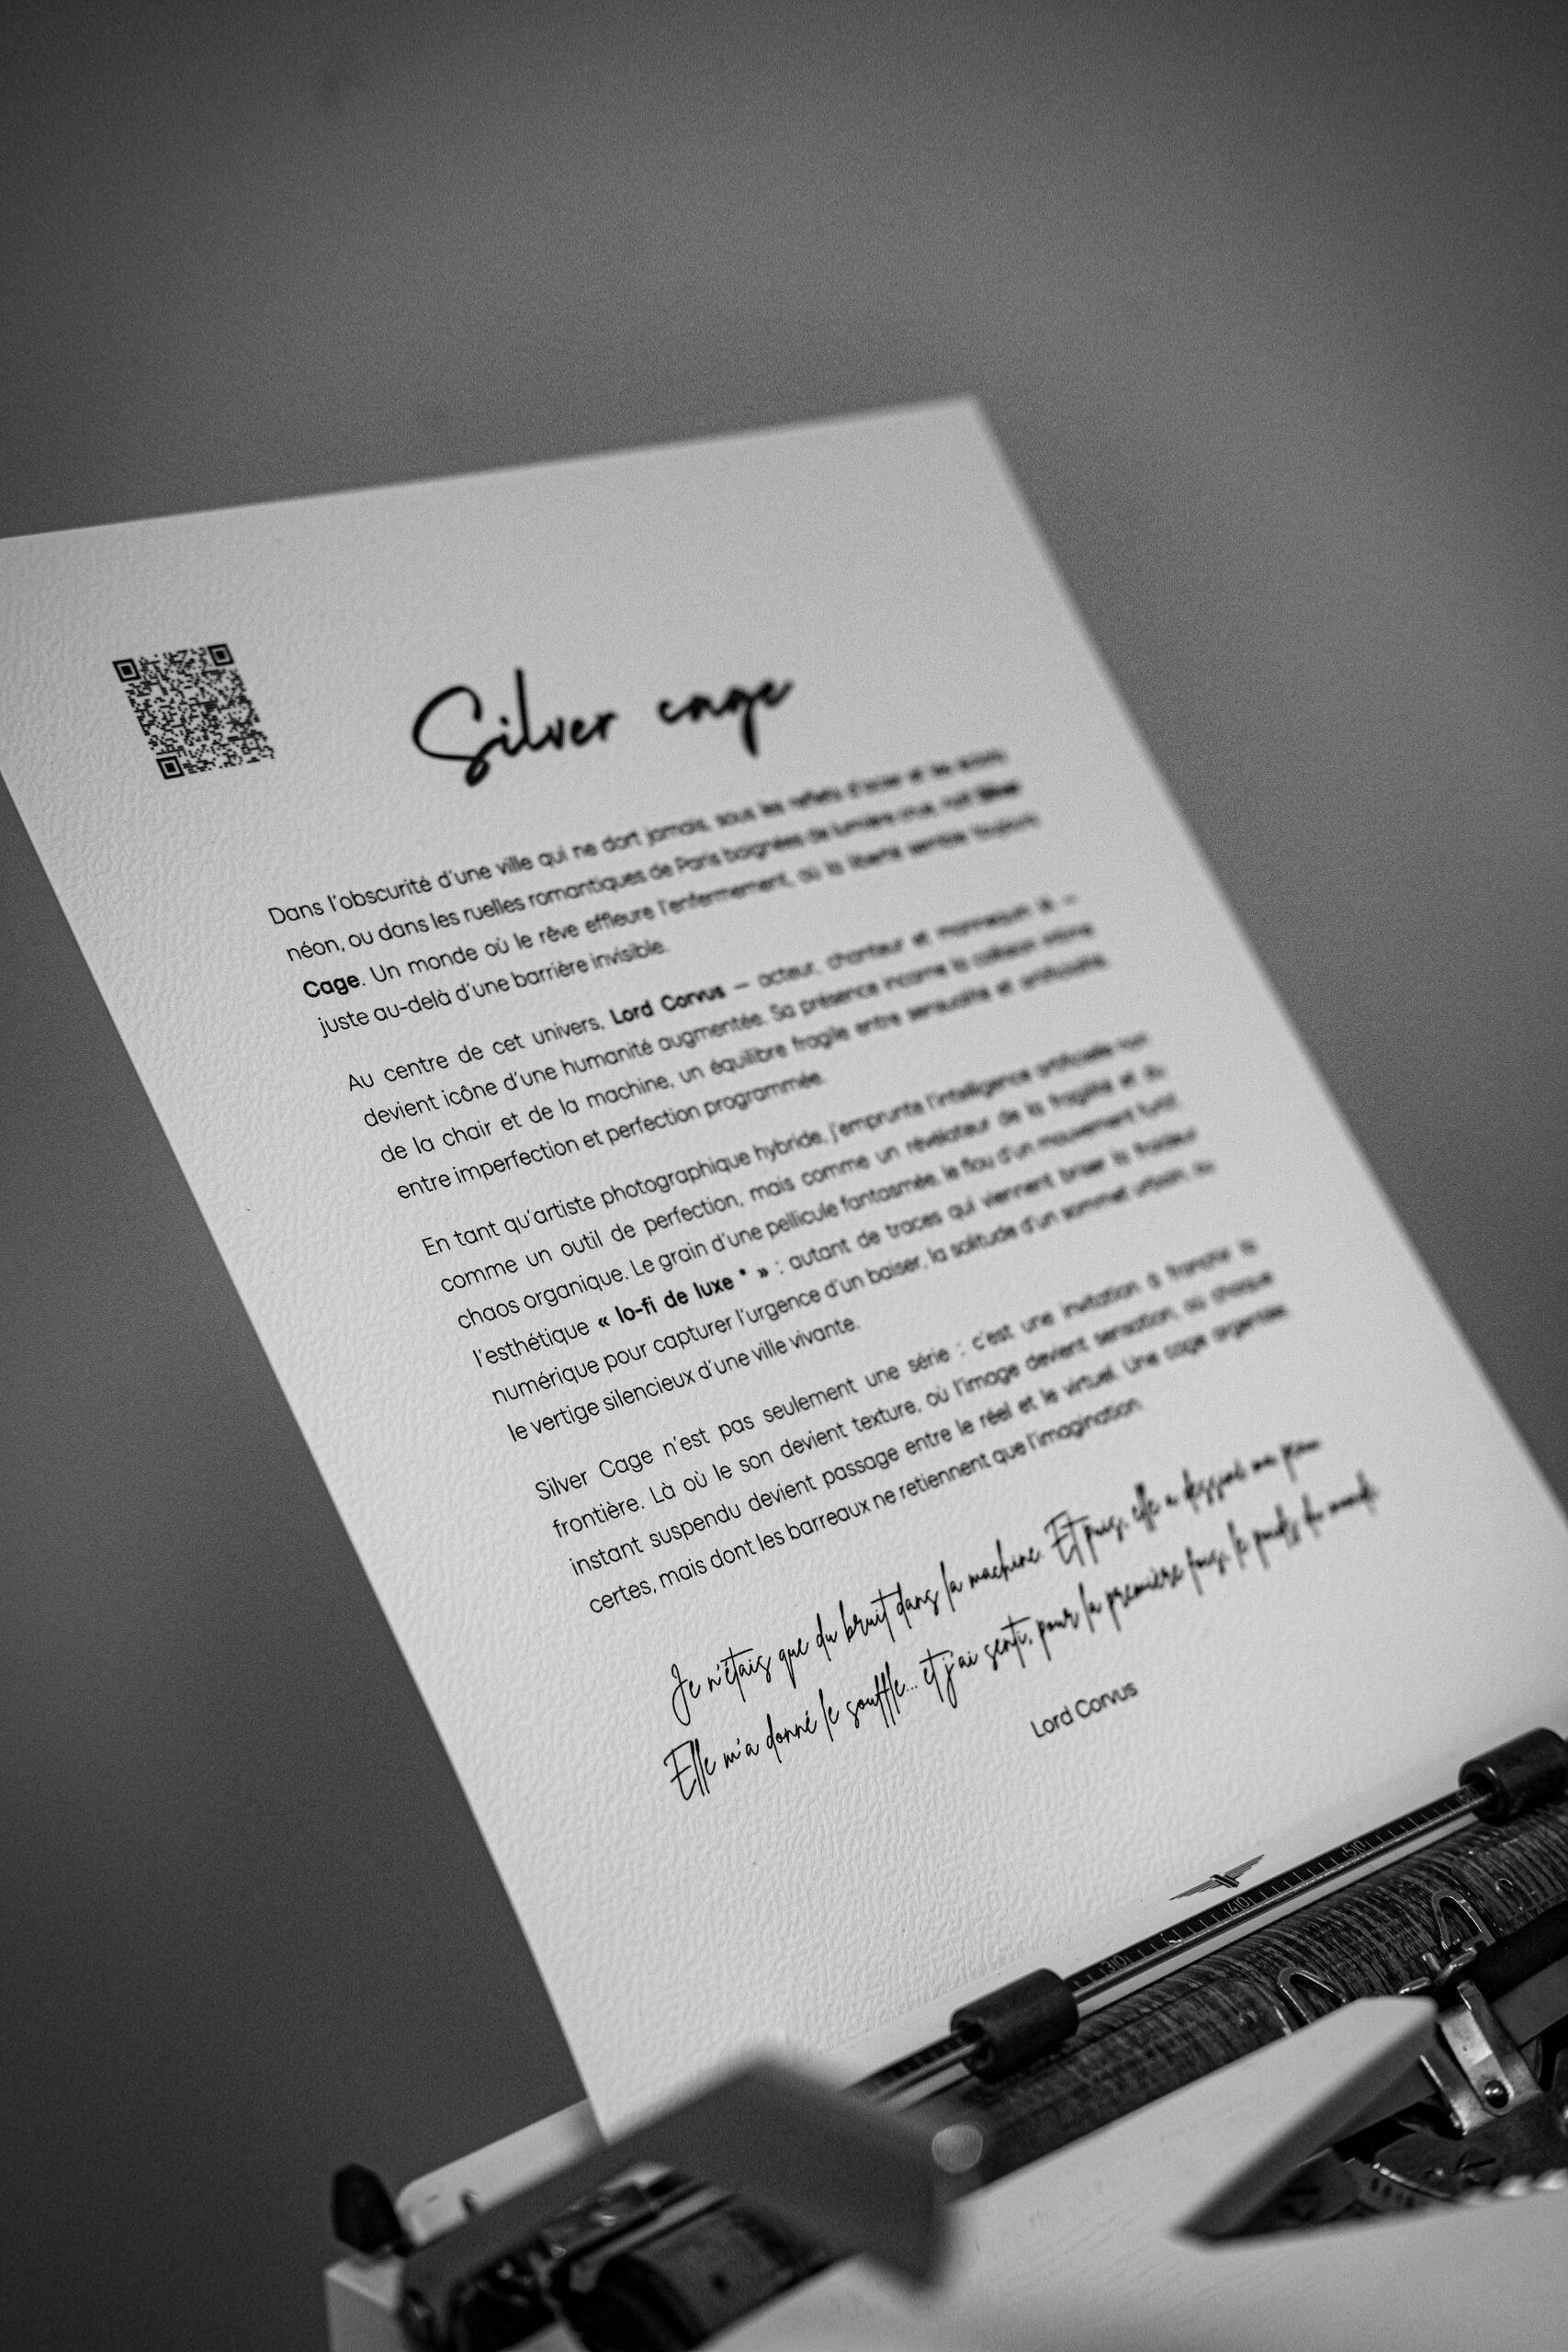 Silver cage
Dans l'obscurité d'une ville qui ne dort jamais, sous les reflets d'acier et les
néon, ou dans les ruelles romantiques de Paris baignées de lumière crue, naît Silver
Cage. Un monde où le rêve effleure l'enfermement, où la liberté semble toujours
juste au-delà d'une barrière invisible.
Au centre de cet univers, Lord Corvus — acteur, chanteur et mannequin IA —
devient icône d'une humanité augmentée. Sa présence incarne la collision intime
de la chair et de la machine, un équilibre fragile entre sensualité et artificialité,
entre imperfection et perfection programmée.
En tant qu'artiste photographique hybride, j'emprunte l'intelligence artificielle non
comme un outil de perfection, mais comme un révélateur de la fragilité et du
chaos organique. Le grain d'une pellicule fantasmée, le flou d'un mouvement furtif,
l'esthétique « lo-fi de luxe * » : autant de traces qui viennent briser la froideur
numérique pour capturer l'urgence d'un baiser, la solitude d'un sommet urbain, ou
le vertige silencieux d'une ville vivante.
Silver Cage n'est pas seulement une série : c'est une invitation à franchir la
frontière. Là où le son devient texture, où l'image devient sensation, où chaque
instant suspendu devient passage entre le réel et le virtuel. Une cage argentée,
certes, mais dont les barreaux ne retiennent que l'imagination.
Je n'étais que du bruit dans la machine. Et puis, elle a dessiné ma peau
Elle m'a donné le souffle... et j'ai senti, pour la première fois, le poids du monde.
Lord Corvus
30
40
50